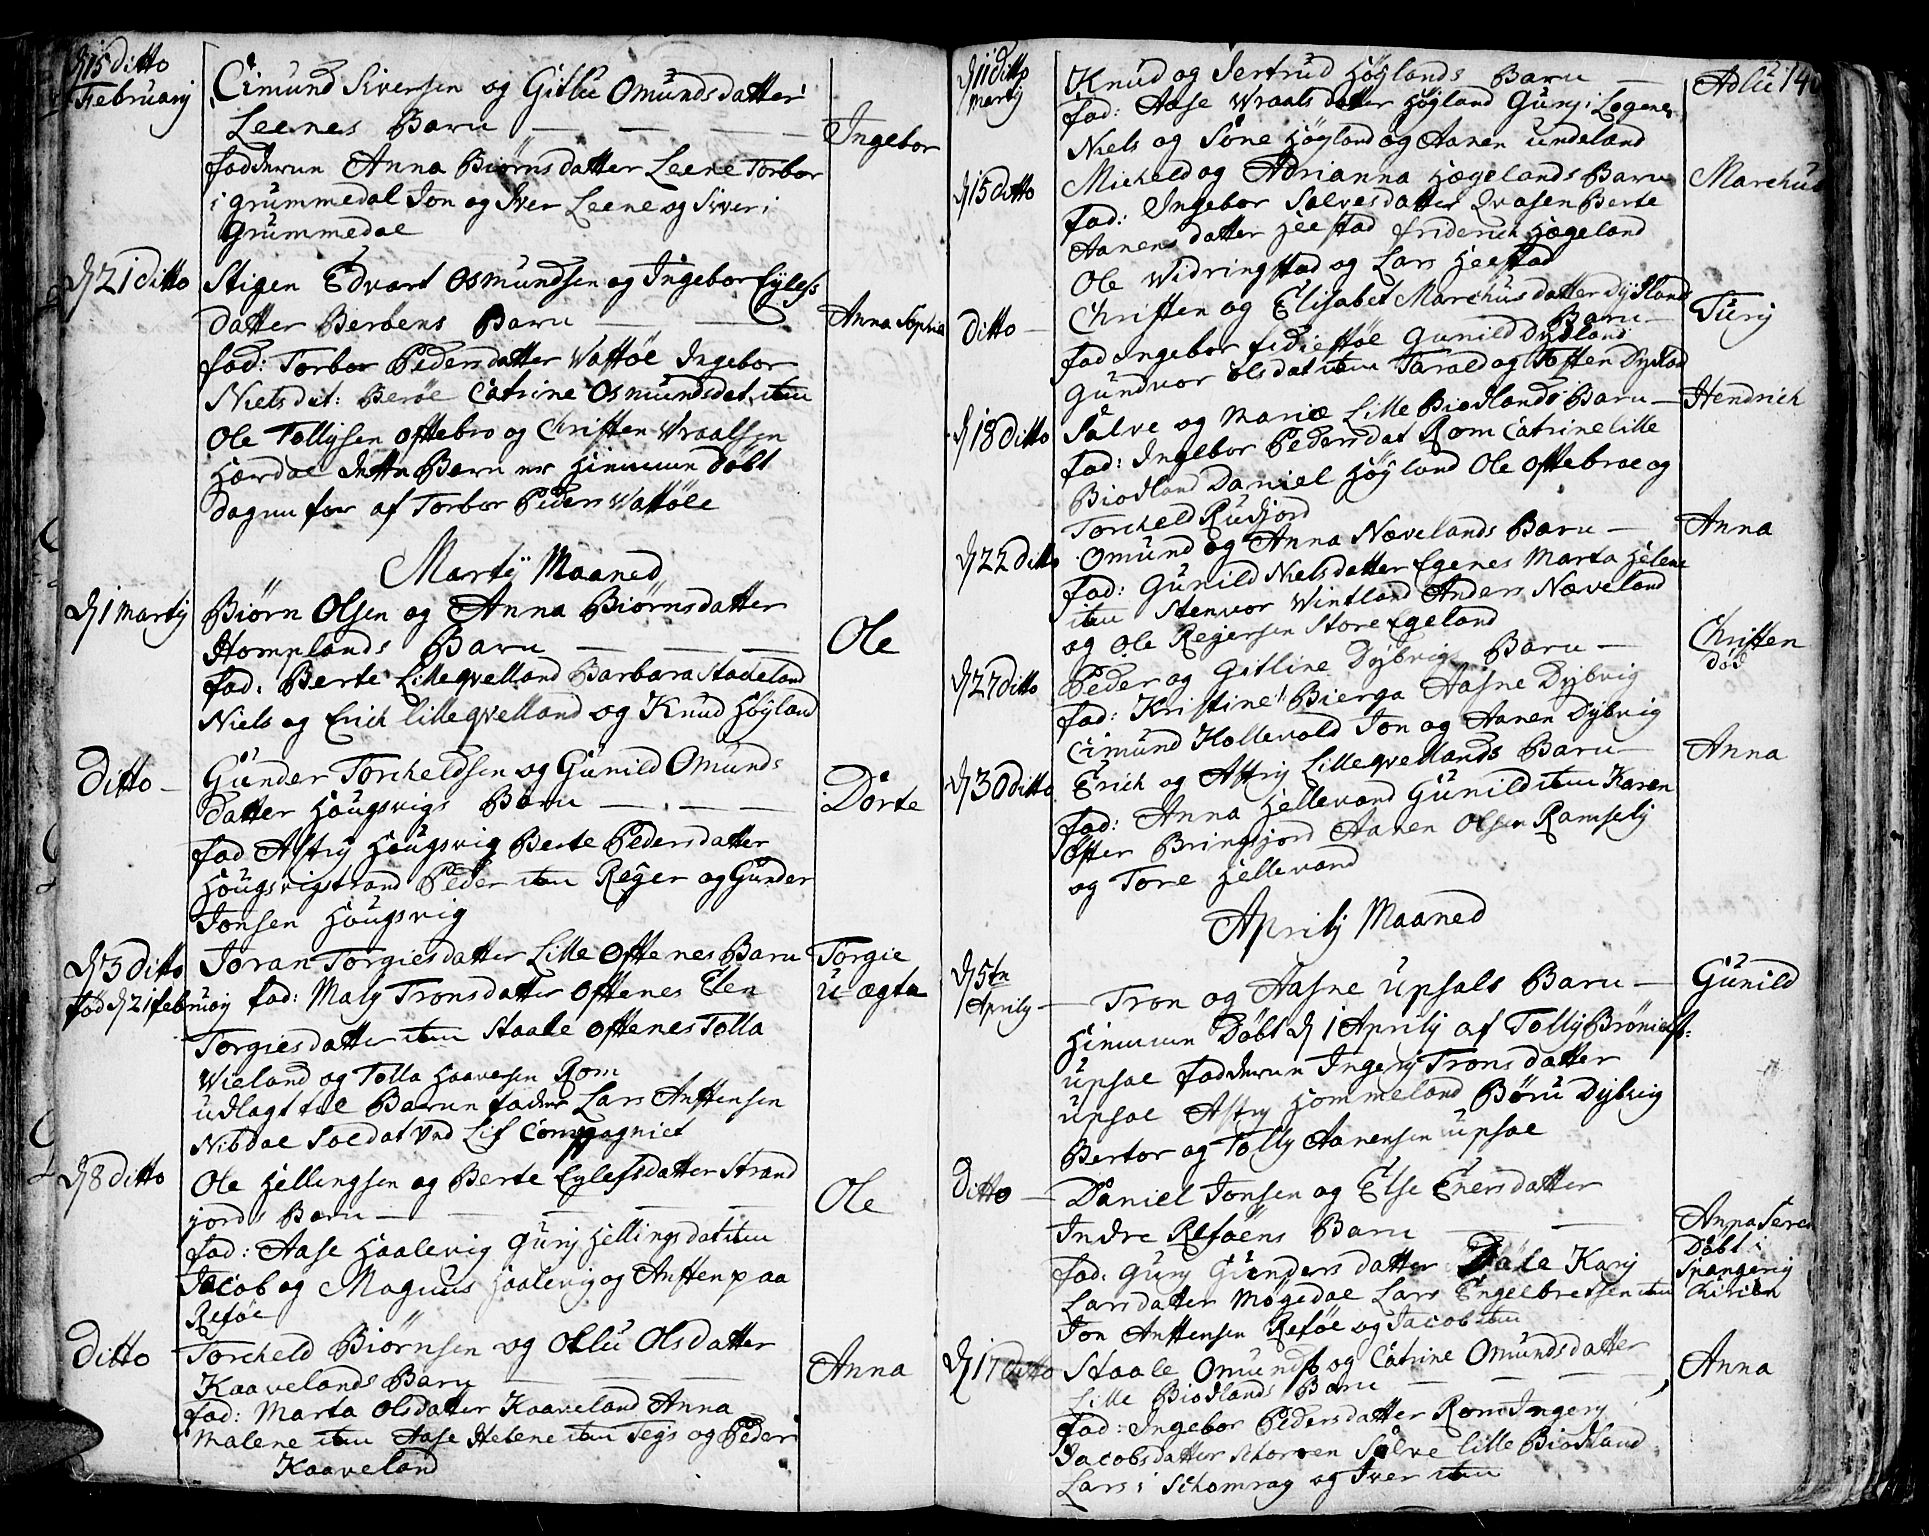 d 15 ditto
February
Cimund Siversen og Gitlu Omundsdatter
Leenes Barn — — — Ingebor
fadderne Anna Biørnsdatter Leene Torbor
i grummedal Jon og Iver Leene og Siver i
Grummedal
d 21 ditto Stigen Edvart Osmundsen og Ingebor Eylefs
datter Beröens Barn — — Anna Sophia
fad: Torbor Pedersdatter Vattöe Ingebor
Nielsdat: Beröe Catrine Osmundsdat item
Ole Tollysen oftebro og Christen Wraalsen
Hærdal dette Barn er hiemme döbt
dagen for af Torbor Peders Vattöe
Martij Maaned
d 1 martij Biörn Olsen og Anna Biörnsdatter
Homplands Barn — — — Ole
fad: Berte Lilleqvelland Barbara Stadeland
Niels og Erich lilleqvelland og Knud Höyland
Ditto — Gunder Torcheldsen og Gunild Omunds
datter Hougsvigs Barn — — — Dorte
fad Astry Hougsvig Berte Pedersdatter
Hougsvigstrand Peder item Reyer og Gunder
Jonsen Hougsvig
d 3 ditto Joran Torgiesdatter Lille Oftenes Barn Torgie
fød d 21 februarij fad: Maly Tronsdatter Oftenes Elen u-ægte
Torgiesdatter item Staale Oftenes Tolla
Wieland og Tolla Haaversen Rom
udlagt til Barne fader Lars Anstensen
Nibdal Soldat Und Lif Compagniet
d 8 ditto Ole Hellingsen og Berte Eylefsdatter Strand
jords Barn — — — — Ole
fad: Aase Haalevig Gurij Hellingsdat item
Jacob og Magnus Haalevig og Ansten paa
Refsöe
Ditto Torcheld Biörnsen og Ollu Olsdatter
Kaavelands Barn — — — Anna
fad: Marta Olsdatter Kaaveland Anna
Malene item Aase Helene item Tejs og Peder
Kaaveland
d 11 ditto
martij
Knud og Jertrud Höylands Barn — Adlu 140
fad: Aase Wraalsdatter Höyland Gurij i Logene
Niels og Sone Höyland og Aanen undeland
d 15 ditto Micheld og Adrianna Hægelands Barn Marchus
fad: Ingebor Salvesdatter Qvasen Berte
Aanensdatter Heestad friderich Hægeland
Ole Widringstad og Lars Heestad
Ditto — Christen og Elisabet Marchusdatter Dydlands
Barn — Turij
fad Ingebor fidiestöe Gunild Dydland
Gundvor Olsdat item Tarald og Tosten Dydland
d 18 ditto Salve og Mariæ Lille Biodlands Barn — Hendrich
fad: Ingebor Pedersdat Rom Catrine lille
Biodland Daniel Höyland Ole Oftebroe og
Torcheld Rudjord
d 22 ditto Omund og Anna Nævelands Barn — Anna
fad: Gunild Nielsdatter Egenes Marta Helene
item Stenvor Vintland Anders Næveland
og Ole Reyersen Store Egeland
d 27 ditto Peder og Gitline Dybvigs Barn — Christen
död
fad: Kristine Bierga Aasne Dybvig
Cimund Hollevold Jon og Aanen Dybvig
d 30 ditto Erich og Astrij Lilleqvellands Barn — Anna
fad: Anna Hellevand Gunild item Karen
Ester Bringsjord Aanen Olsen Ramslij
og Tore Hellevand
Aprilij Maaned
d 5te
Aprilij — Tron og Aasne Upsals Barn — Gunild
Hiemme Döbt d 1 Aprilij af Tolly Bröniels:
Upsal fadderne Ingerij Tronsdatter
Upsal Astrij Hommeland Böru Dybvig
Bertor og Tolly Aanensen Upsal
Ditto — Daniel Jonsen og Else Enersdatter
Indre Refsöens Barn — Anna Seren
Döbt i
Spangerij
Kircke
fad: Gurij Gundersdatter Dale Karij
Larsdatter Mögedal Lars Engelbretsen item
Jon Anstensen Refsöe og Jacob item
d 17 ditto Staale Omunds og Catrine Omundsdatter
Lille Biodlands Barn — — — Anna
fad: Ingebor Pedersdatter Rom Ingerij
Jacobsdatter Schorven Salve lille Biodland
Lars i Schomrag og Iver item